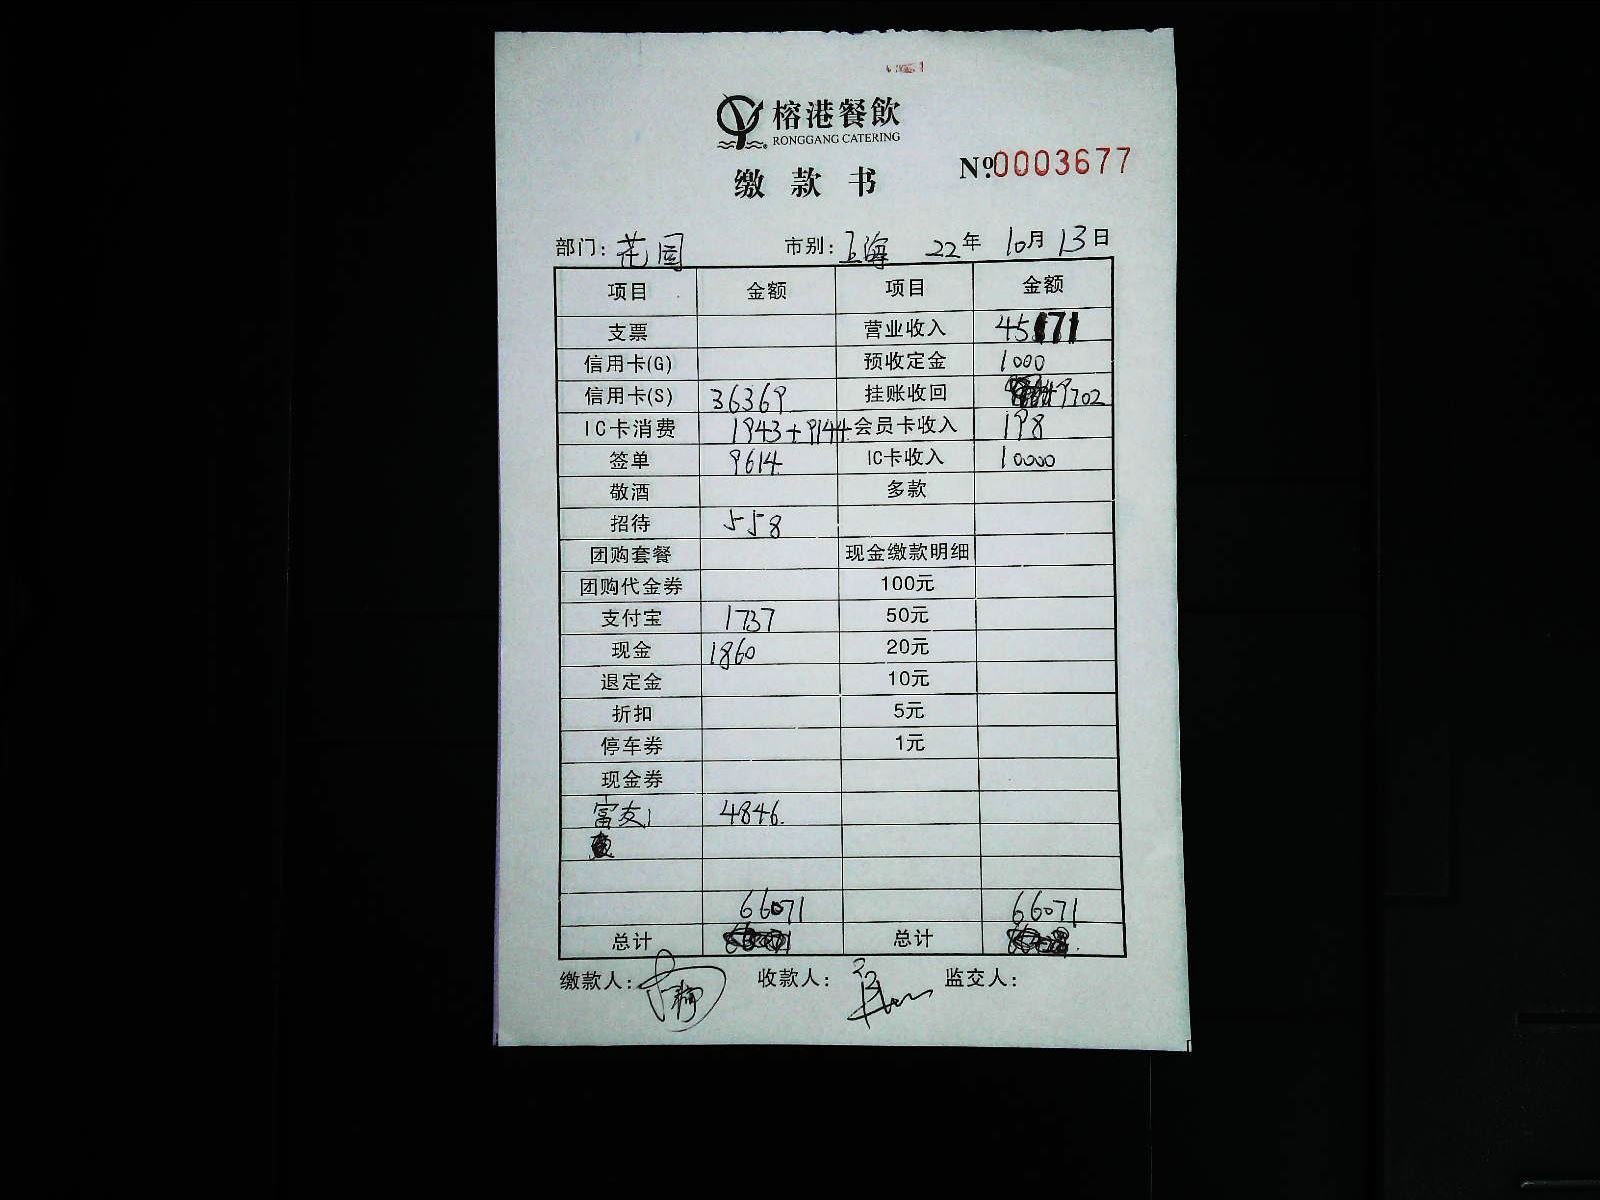 榕港餐飲
RONGGANG CATERING
缴款书
№0003677
部门：花园 市别：上海 22年 10月 13日
项目 金额 项目 金额
支票 营业收入 45171
信用卡(G) 预收定金 1000
信用卡(S) 36369 挂账收回 9702
IC卡消费 1943+9144 会员卡收入 198
签单 9614 IC卡收入 10000
敬酒 多款
招待 558
团购套餐 现金缴款明细
团购代金券 100元
支付宝 1737 50元
现金 1860 20元
退定金 10元
折扣 5元
停车券 1元
现金券
富友1 4846
66071 66071
总计 总计
缴款人： 收款人： 监交人：